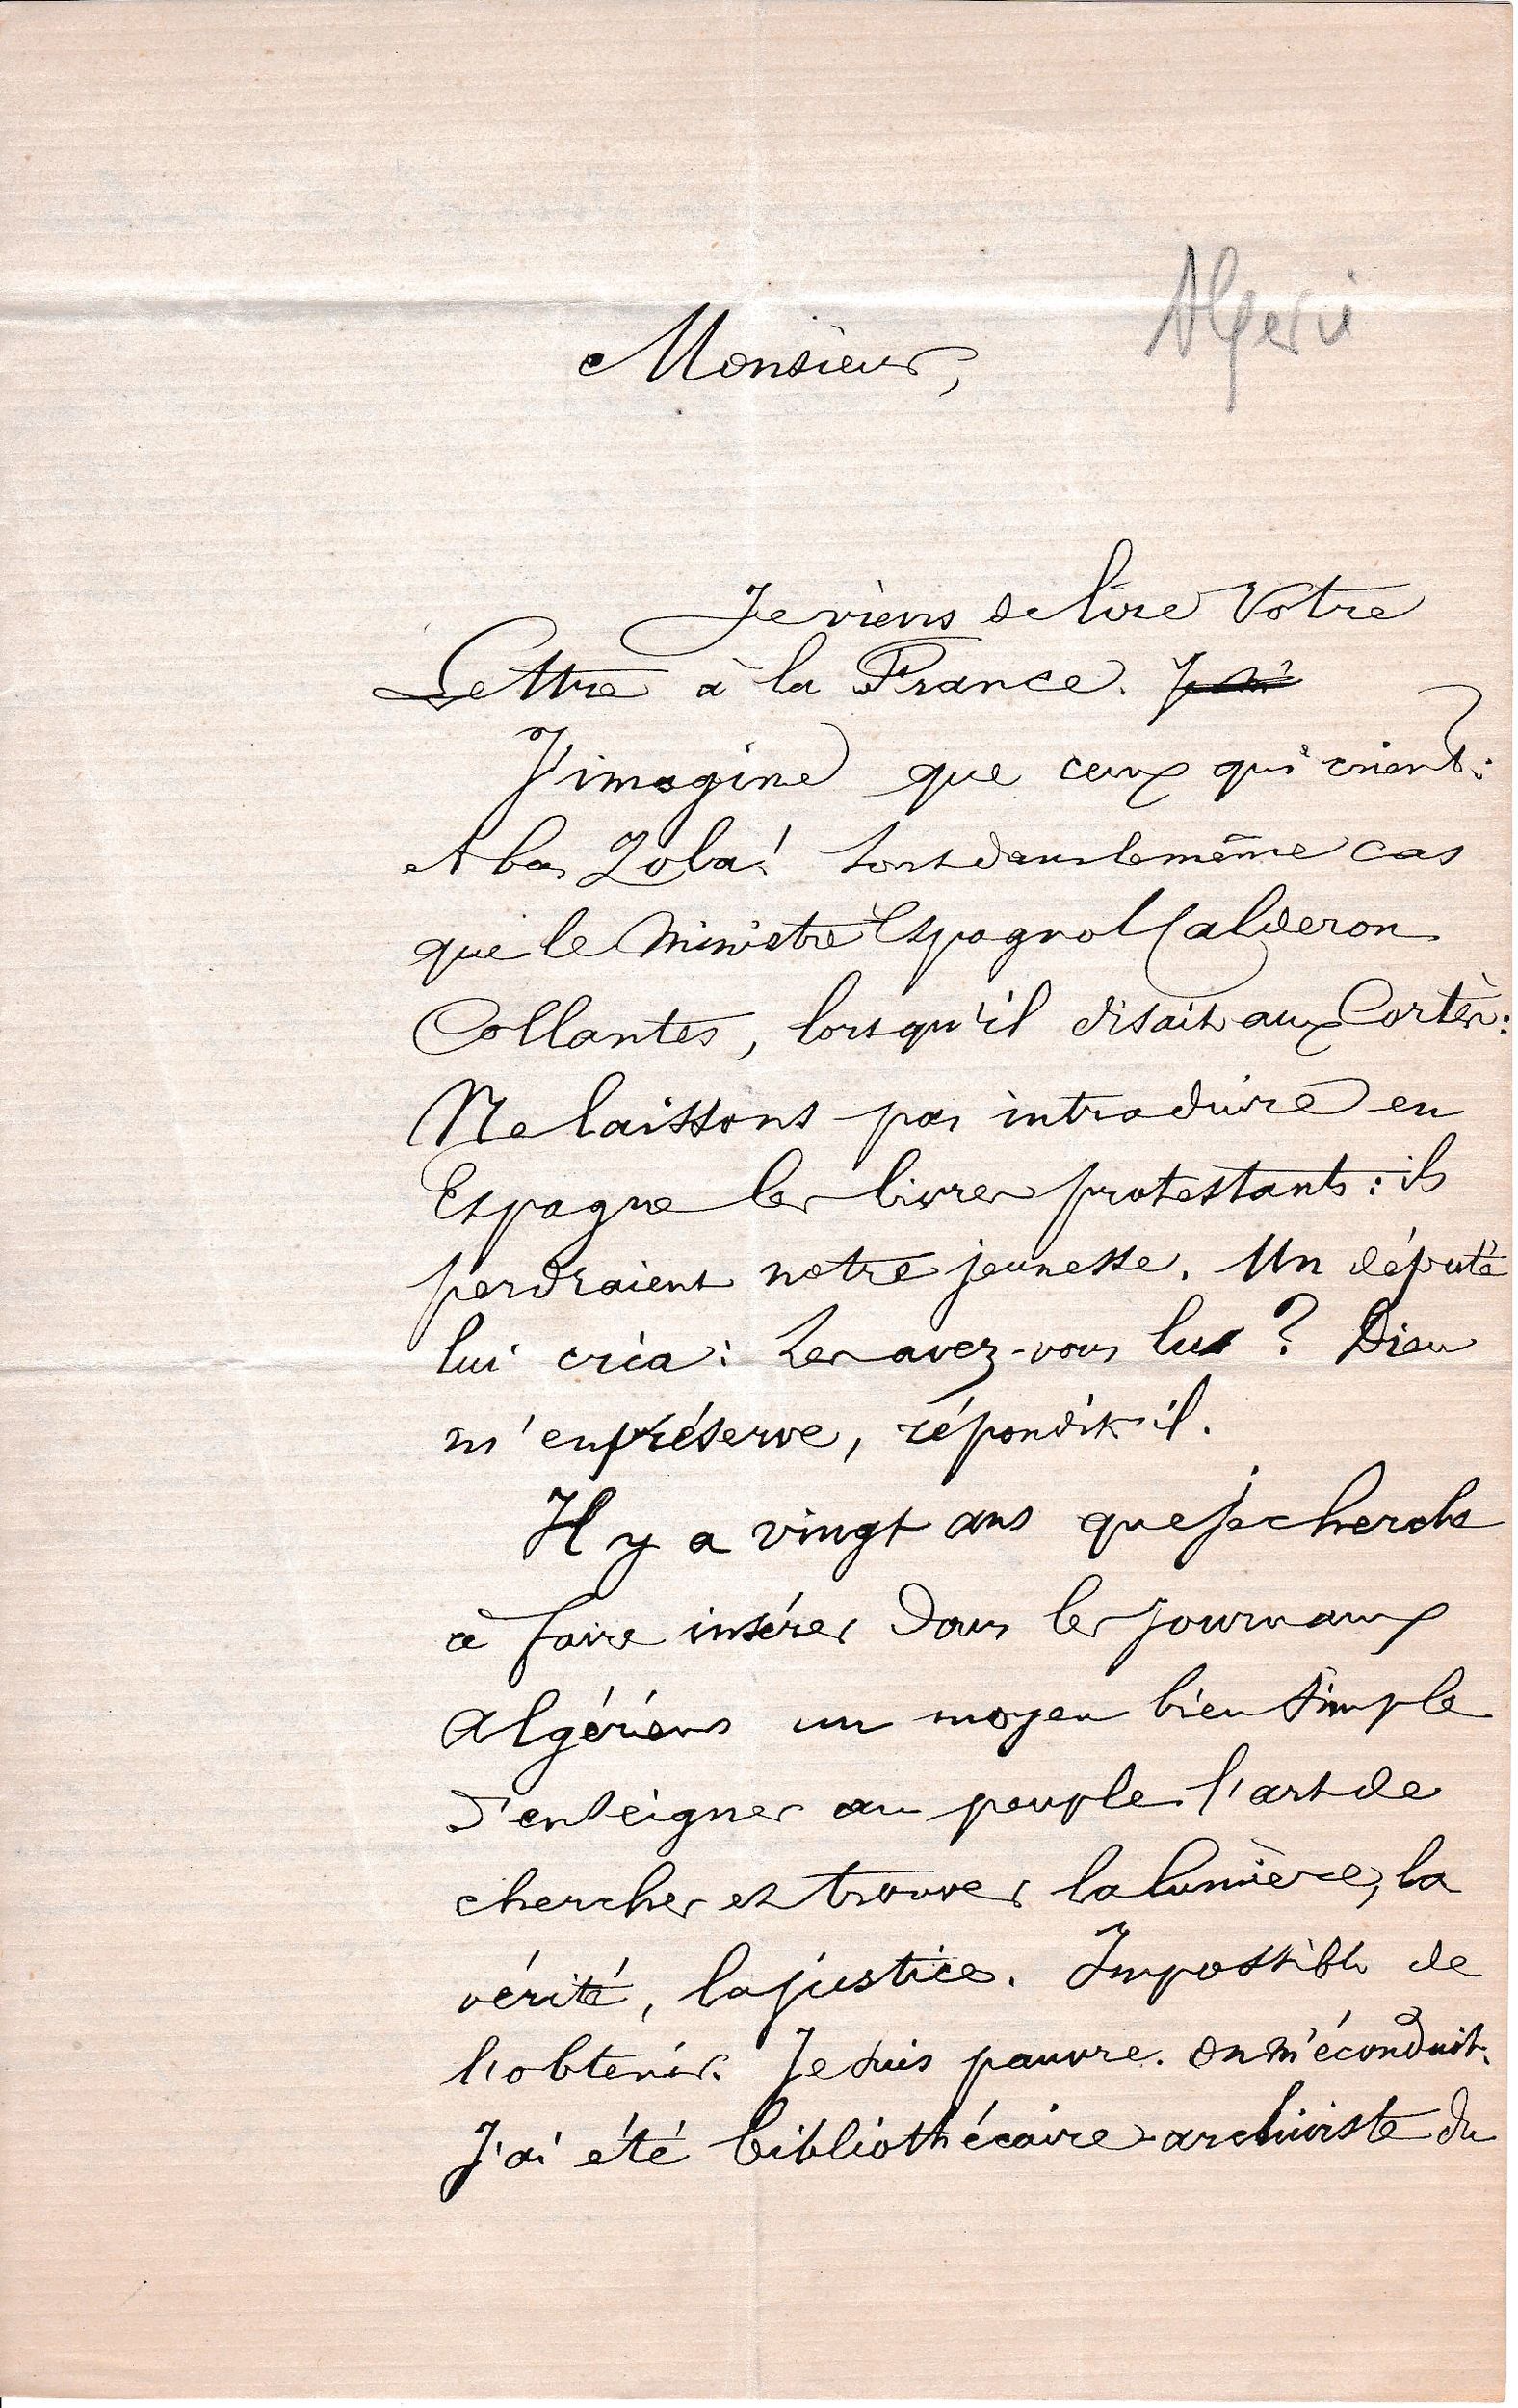 Algerie
Monsieur,
Je viens de lire Votre
Lettre à la France.
J'imagine que ceux qui crient:
A bas Zola! sont dans le même cas
que le Ministre Espagnol Calderon
Collantes, lorsqu'il disait aux Cortès:
Ne laissons pas introduire en
Espagne les livres protestants: ils
perdraient notre jeunesse. Un député
lui cria: Les avez-vous lus? Dieu
m'en préserve, répondit-il.
Il y a vingt ans que je cherche
à faire insérer dans les journaux
algériens un moyen bien simple
d'enseigner au peuple l'art de
chercher et trouver la lumière, la
vérité, la justice. Impossible de
l'obtenir. Je suis pauvre. On m'éconduit.
J'ai été bibliothécaire-archiviste du